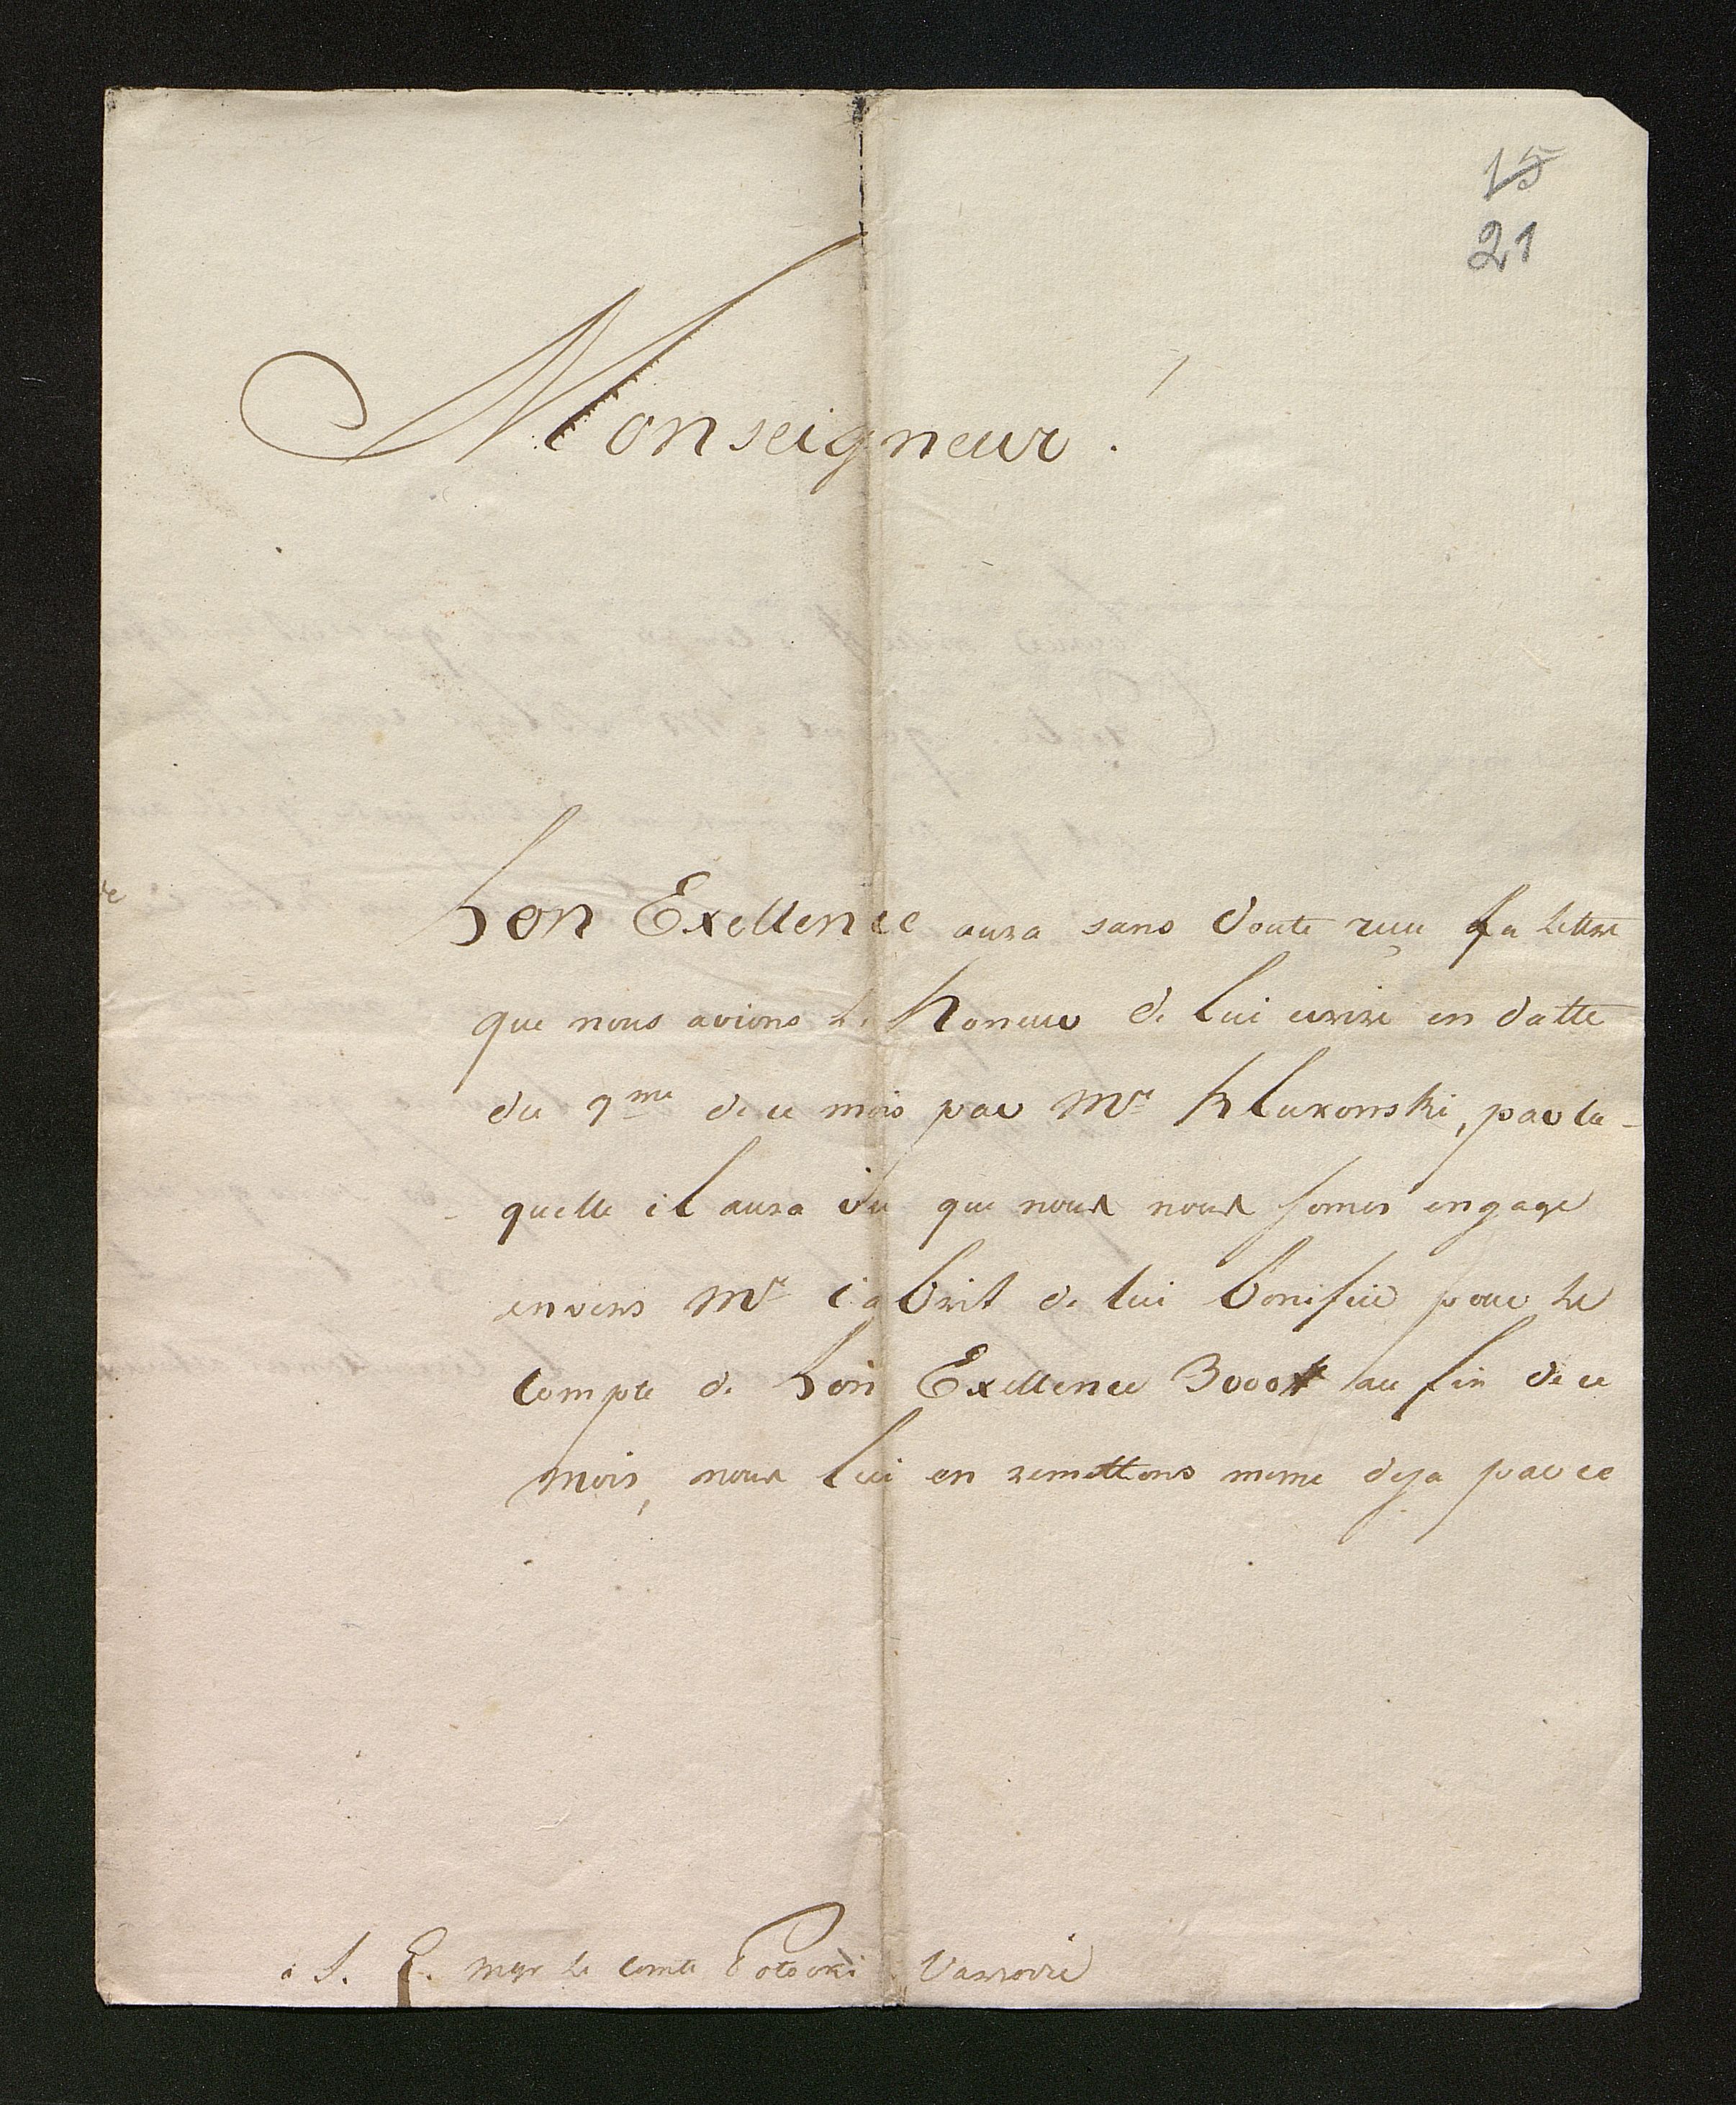 15
21
Monseigneur !
Son Exellence aura sans doute reçu la lettre
que nous avions le honeur de lui ecrire en datte
du 9me de ce mois par Mr Kluxonski, par la-
- quelle il aura vu que nous nous somes engagé
envers Mr Cabrit de lui bonifier pour le
compte de Son Exellence 3000# au fin de ce
mois, nous lui en remettons meme deja par ce
à S. E. Mgr le Comte Potocki Varsovie